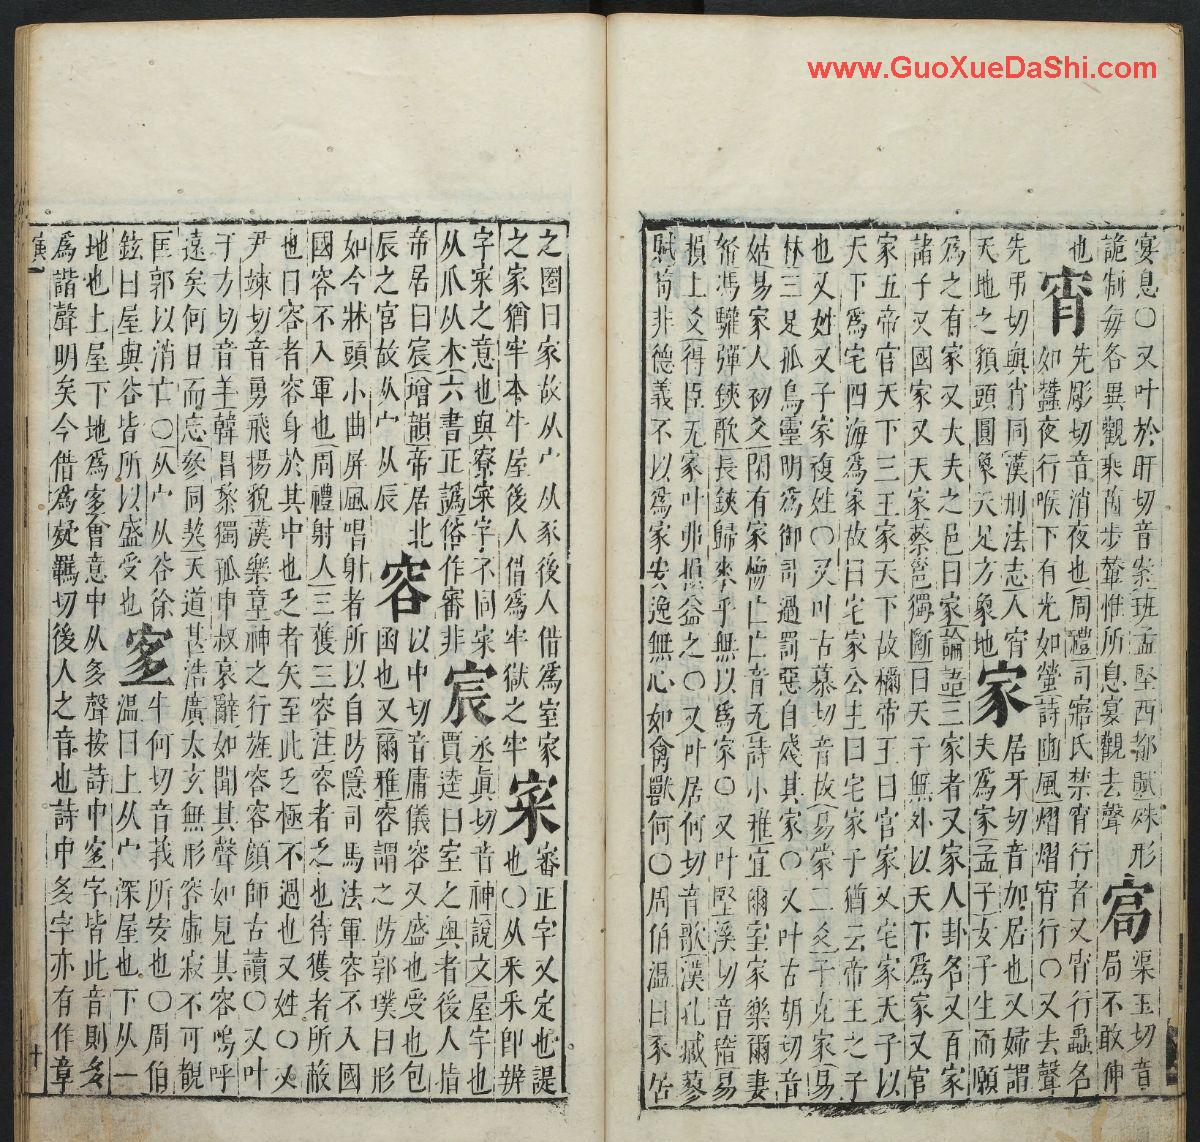 www.GuoXueDaShi.com
宴息〇又叶於肝切音案班孟堅西都賦殊形
詭制每各異觀乘茵步輦惟所息宴觀去聲 窎 渠玉切音
局不敢伸
也 宵 先彫切音消夜也周禮司寤氏禁宵行者又宵行蟲名
如蠶夜行喉下有光如螢詩豳風熠熠宵行〇又去聲
先弔切與肖同漢刑法志人宵
天地之䫉頭圓象天足方象地 家 居牙切音加居也又婦謂
夫爲家孟子女子生而願
爲之有家又大夫之邑曰家論語三家者又家人卦名又百家
諸子又國家又天家蔡邕獨斷曰天子無外以天下爲家又官
家五帝官天下三王家天下故稱帝王曰官家又宅家天子以
天下爲宅四海爲家故曰宅家公主曰宅家子猶云帝王之子
也又姓又子家複姓〇又叶古慕切音故易蒙二爻子克家易
林三足孤烏靈明爲御司過罰惡自殘其家〇又叶古胡切音
姑易家人初爻閑有家悔亡亡音无詩小雅宜爾室家樂爾妻
帑馮驩彈鋏歌長鋏歸來乎無以爲家〇又叶堅溪切音雞易
損上爻得臣无家叶弗損益之〇又叶居何切音歌漢孔臧蓼
賦苟非德義不以爲家安逸無心如禽獸何〇周伯溫曰豕居
之圈曰家故从宀从豕後人借爲室家
之家猶牢本牛屋後人借爲牢獄之牢 寀 審正字又定也諟
也〇从釆釆卽辨
字寀之意也與寮寀字不同寀
从爪从木六書正譌俗作審非 宸 丞眞切音神說文屋宇也
賈逵曰室之奥者後人指
帝居曰宸增韻帝居北
辰之宮故从宀从辰 容 以中切音庸儀容又盛也受也包
函也又爾雅容謂之防郭璞曰形
如今牀頭小曲屏風唱射者所以自防隱司馬法軍容不入國
國容不入軍也周禮射人三獲三容注容者乏也待獲者所蔽
也曰容者容身於其中也乏者矢至此乏極不過也又姓〇又
尹竦切音勇飛揚貌漢樂章神之行旌容容顏師古讀〇又叶
于方切音羊韓昌黎獨孤申叔哀辭如聞其聲如見其容嗚呼
遠矣何日而忘參同契天道甚浩廣太玄無形容虛寂不可覩
匡郭以消亡〇从宀从谷徐
鉉曰屋與谷皆所以盛受也 宐 牛何切音莪所安也〇周伯
溫曰上从宀深屋也下从一
地也上屋下地爲宐會意中从多聲按詩中宐字皆此音則多
爲諧聲明矣今借爲疑羈切後人之音也詩中多字亦有作章